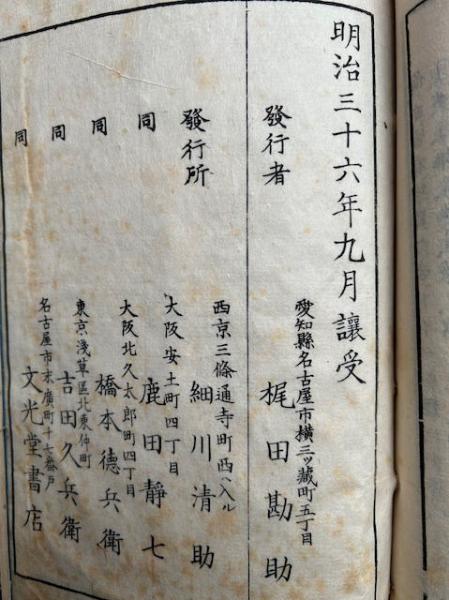 明治三十六年九月讓受
愛知縣名古屋市橫三ッ藏町五丁目
發行者 梶田勘助
西京三條通寺町西ヘ入ル
發行所 細川清助
大阪安土町四丁目
同 鹿田靜七
大阪北久太郎町四丁目
同 橋本德兵衛
東京淺草區北東仲町
同 吉田久兵衛
名古屋市末廣町十七番戶
同 文光堂書店